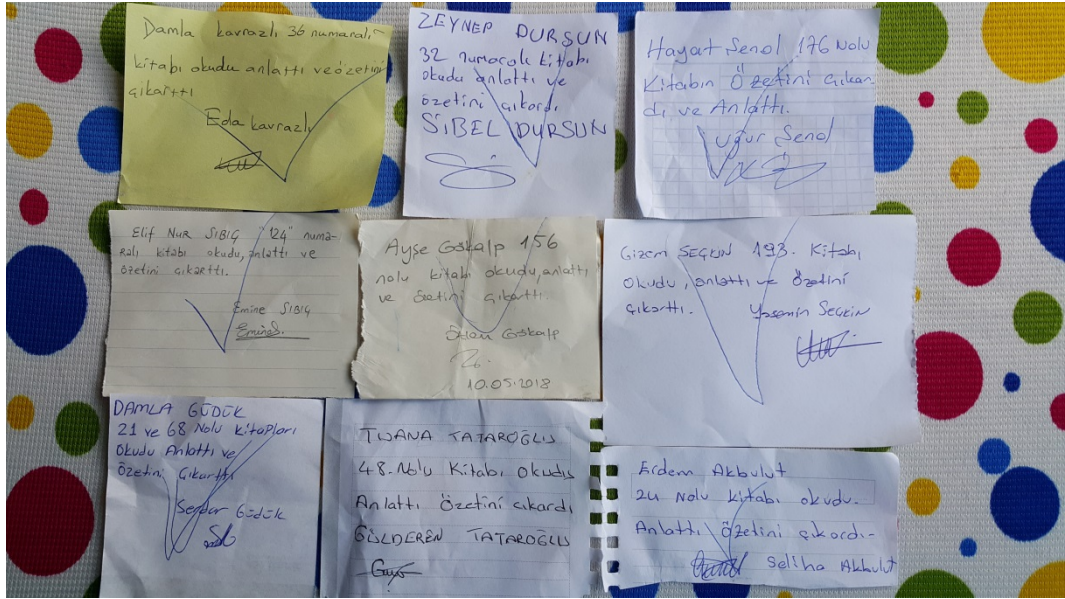 Damla kavrazlı 36 numaralı
kitabı okudu anlattı ve özetini
çıkarttı
Eda kavrazlı
ZEYNEP DURSUN
32 numaralı kitabı
okudu anlattı ve
özetini çıkardı.
SİBEL DURSUN
Hayat Şenol 176 Nolu
Kitabın Özetini Çıkar
dı ve Anlattı.
Uğur Şenol
Elif NUR SIBIÇ "124" numa-
ralı kitabı okudu, anlattı ve
özetini çıkarttı.
Emine SIBIÇ
EmineS.
Ayşe Gökalp 156
nolu kitabı okudu, anlattı
ve özetini çıkarttı.
Gökalp
10.05.2018
Gizem SEÇKİN 193. Kitabı
Okudu, anlattı ve özetini
çıkarttı. Yasemin Seçkin
DAMLA GÜDÜK
21 ve 68 Nolu kitapları
Okudu Anlattı ve
Özetini Çıkarttı
Serdar Güdük
TUANA TATAROĞLU
48. Nolu Kitabı Okudu
Anlattı Özetini çıkardı
GÜLDEREN TATAROĞLU
Erdem Akbulut
24 Nolu kitabı okudu.
Anlattı özetini çıkardı-
Seliha Akbulut